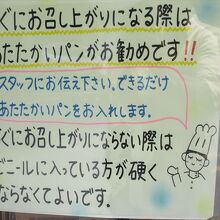 ぐにお召し上がりになる際は
あたたかいパンがお勧めです!!
スタッフにお伝え下さい。できるだけ
あたたかいパンをお入れします。
ぐにお召し上がりにならない際は
ビニールに入っている方が硬く
ならなくてよいです。